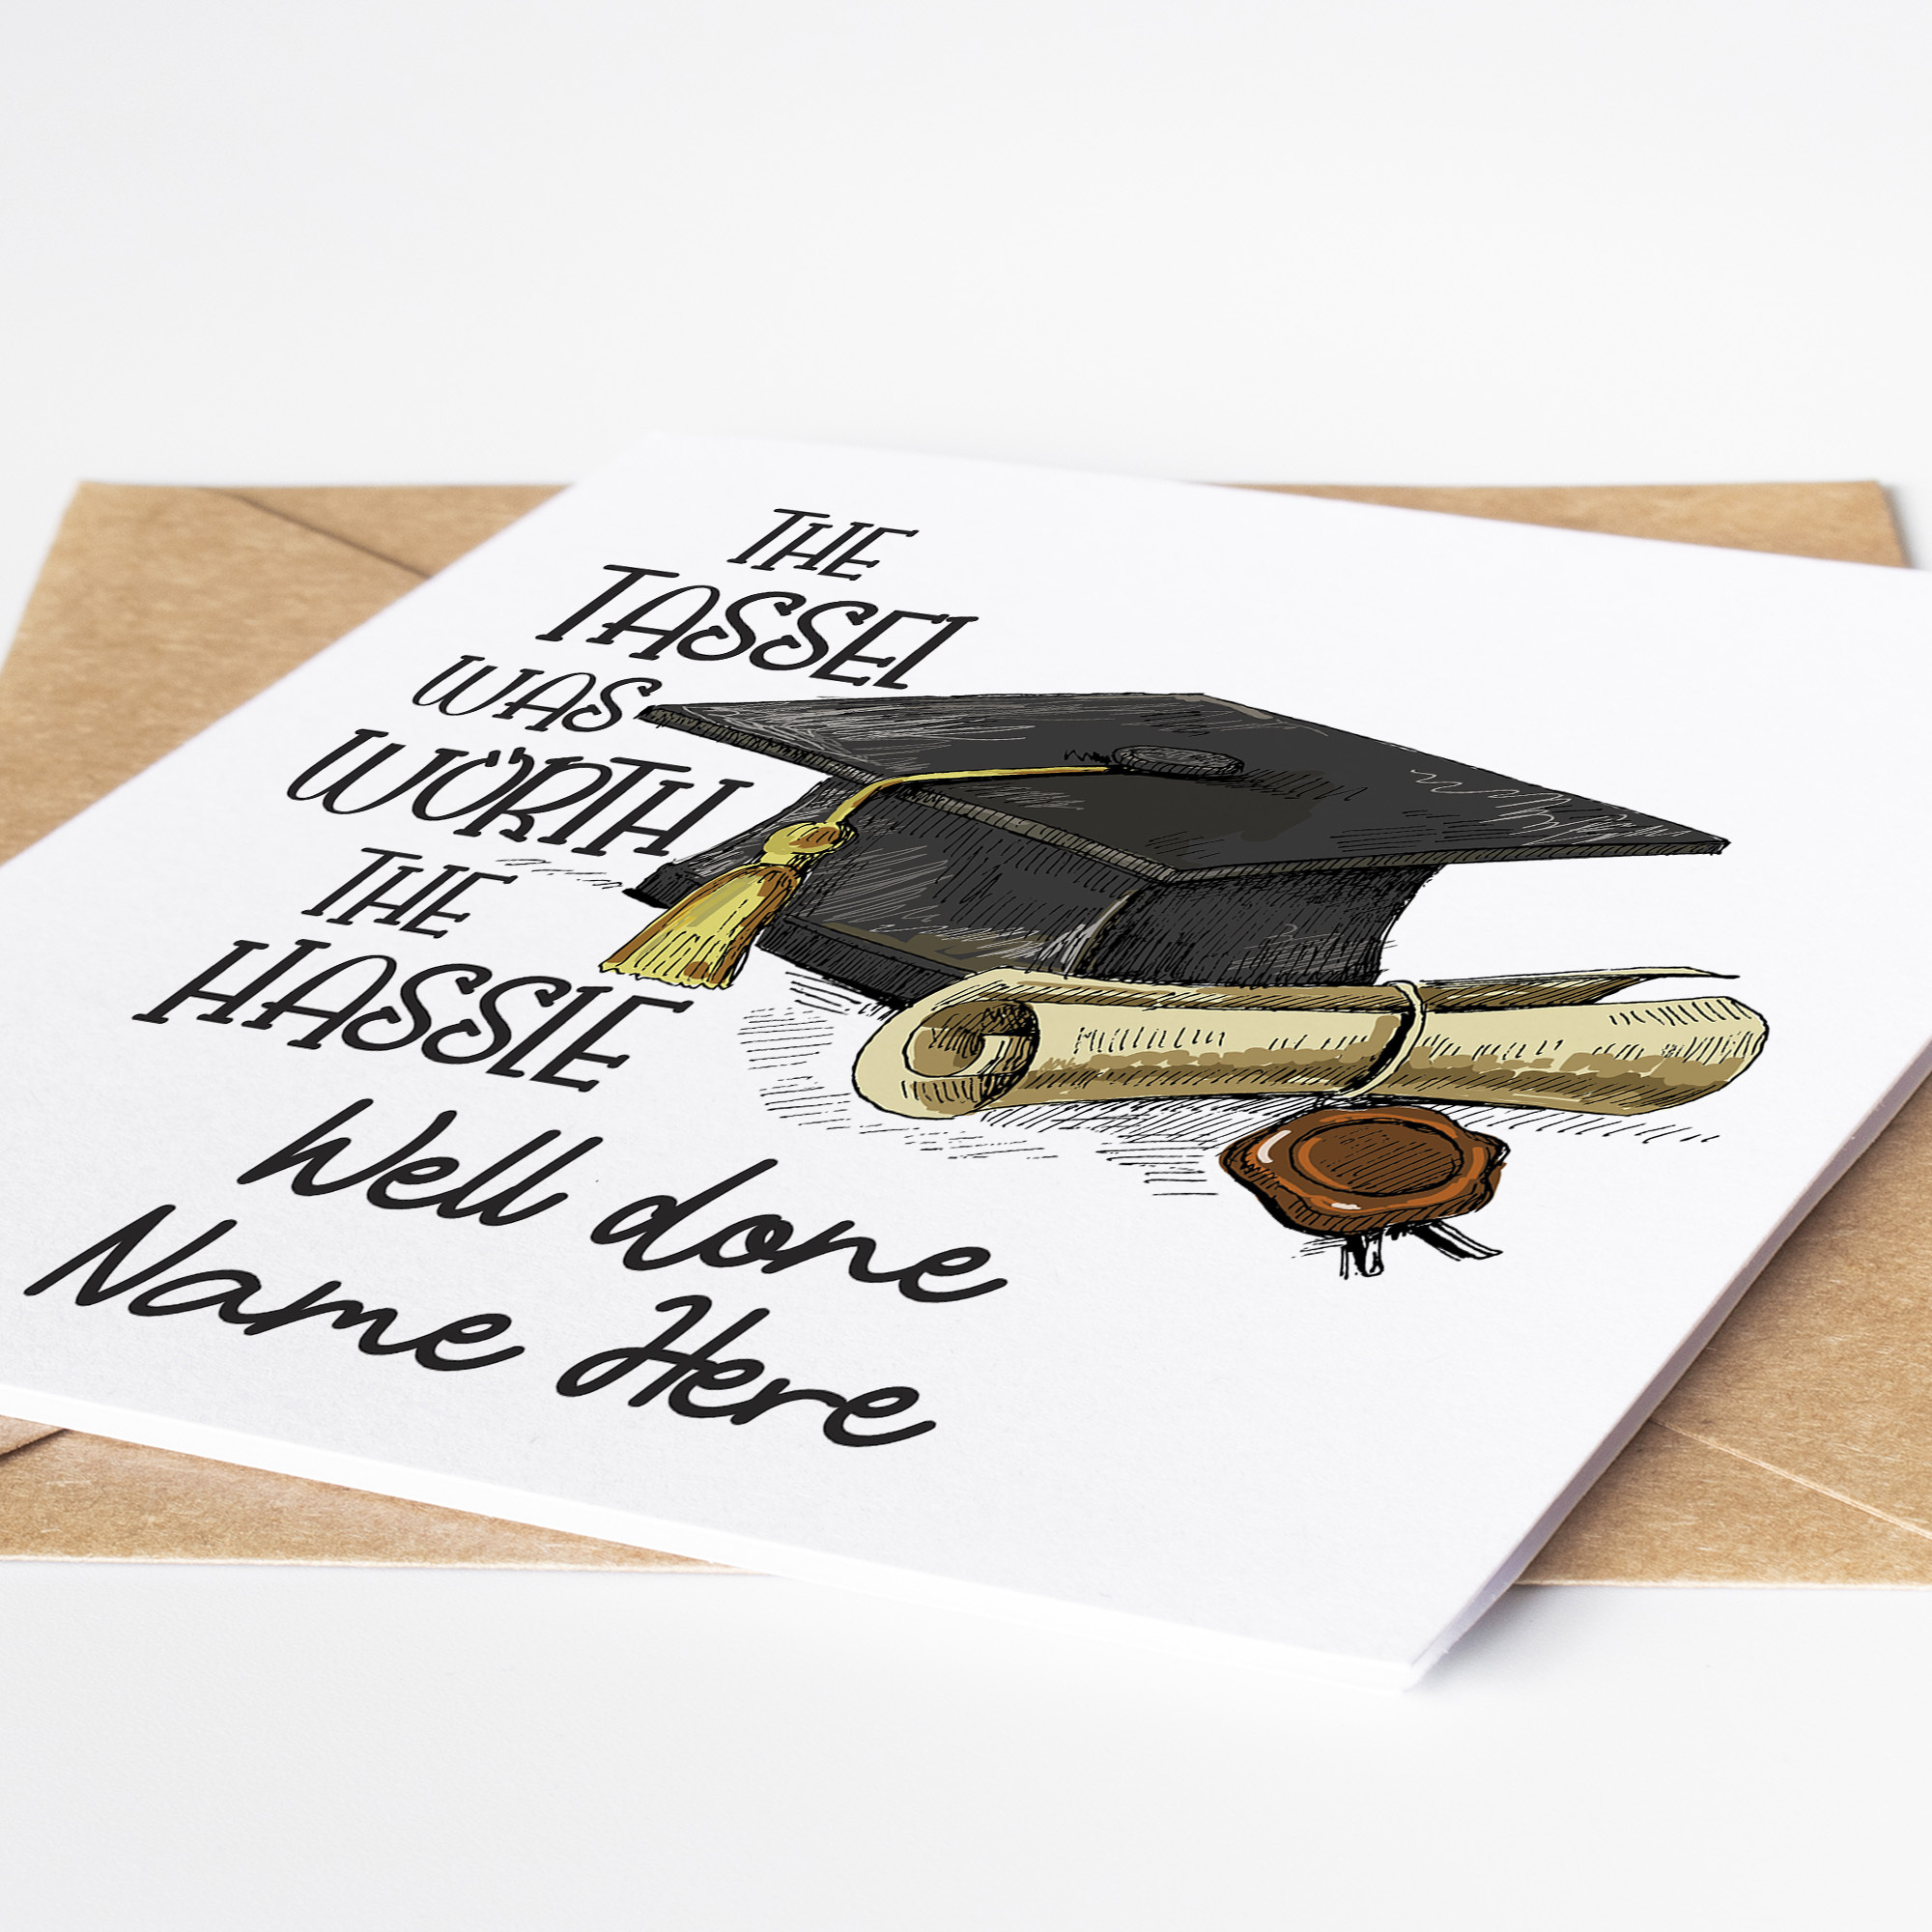 THE
TASSEL
WAS
WORTH
THE
HASSLE
Well done
Name Here